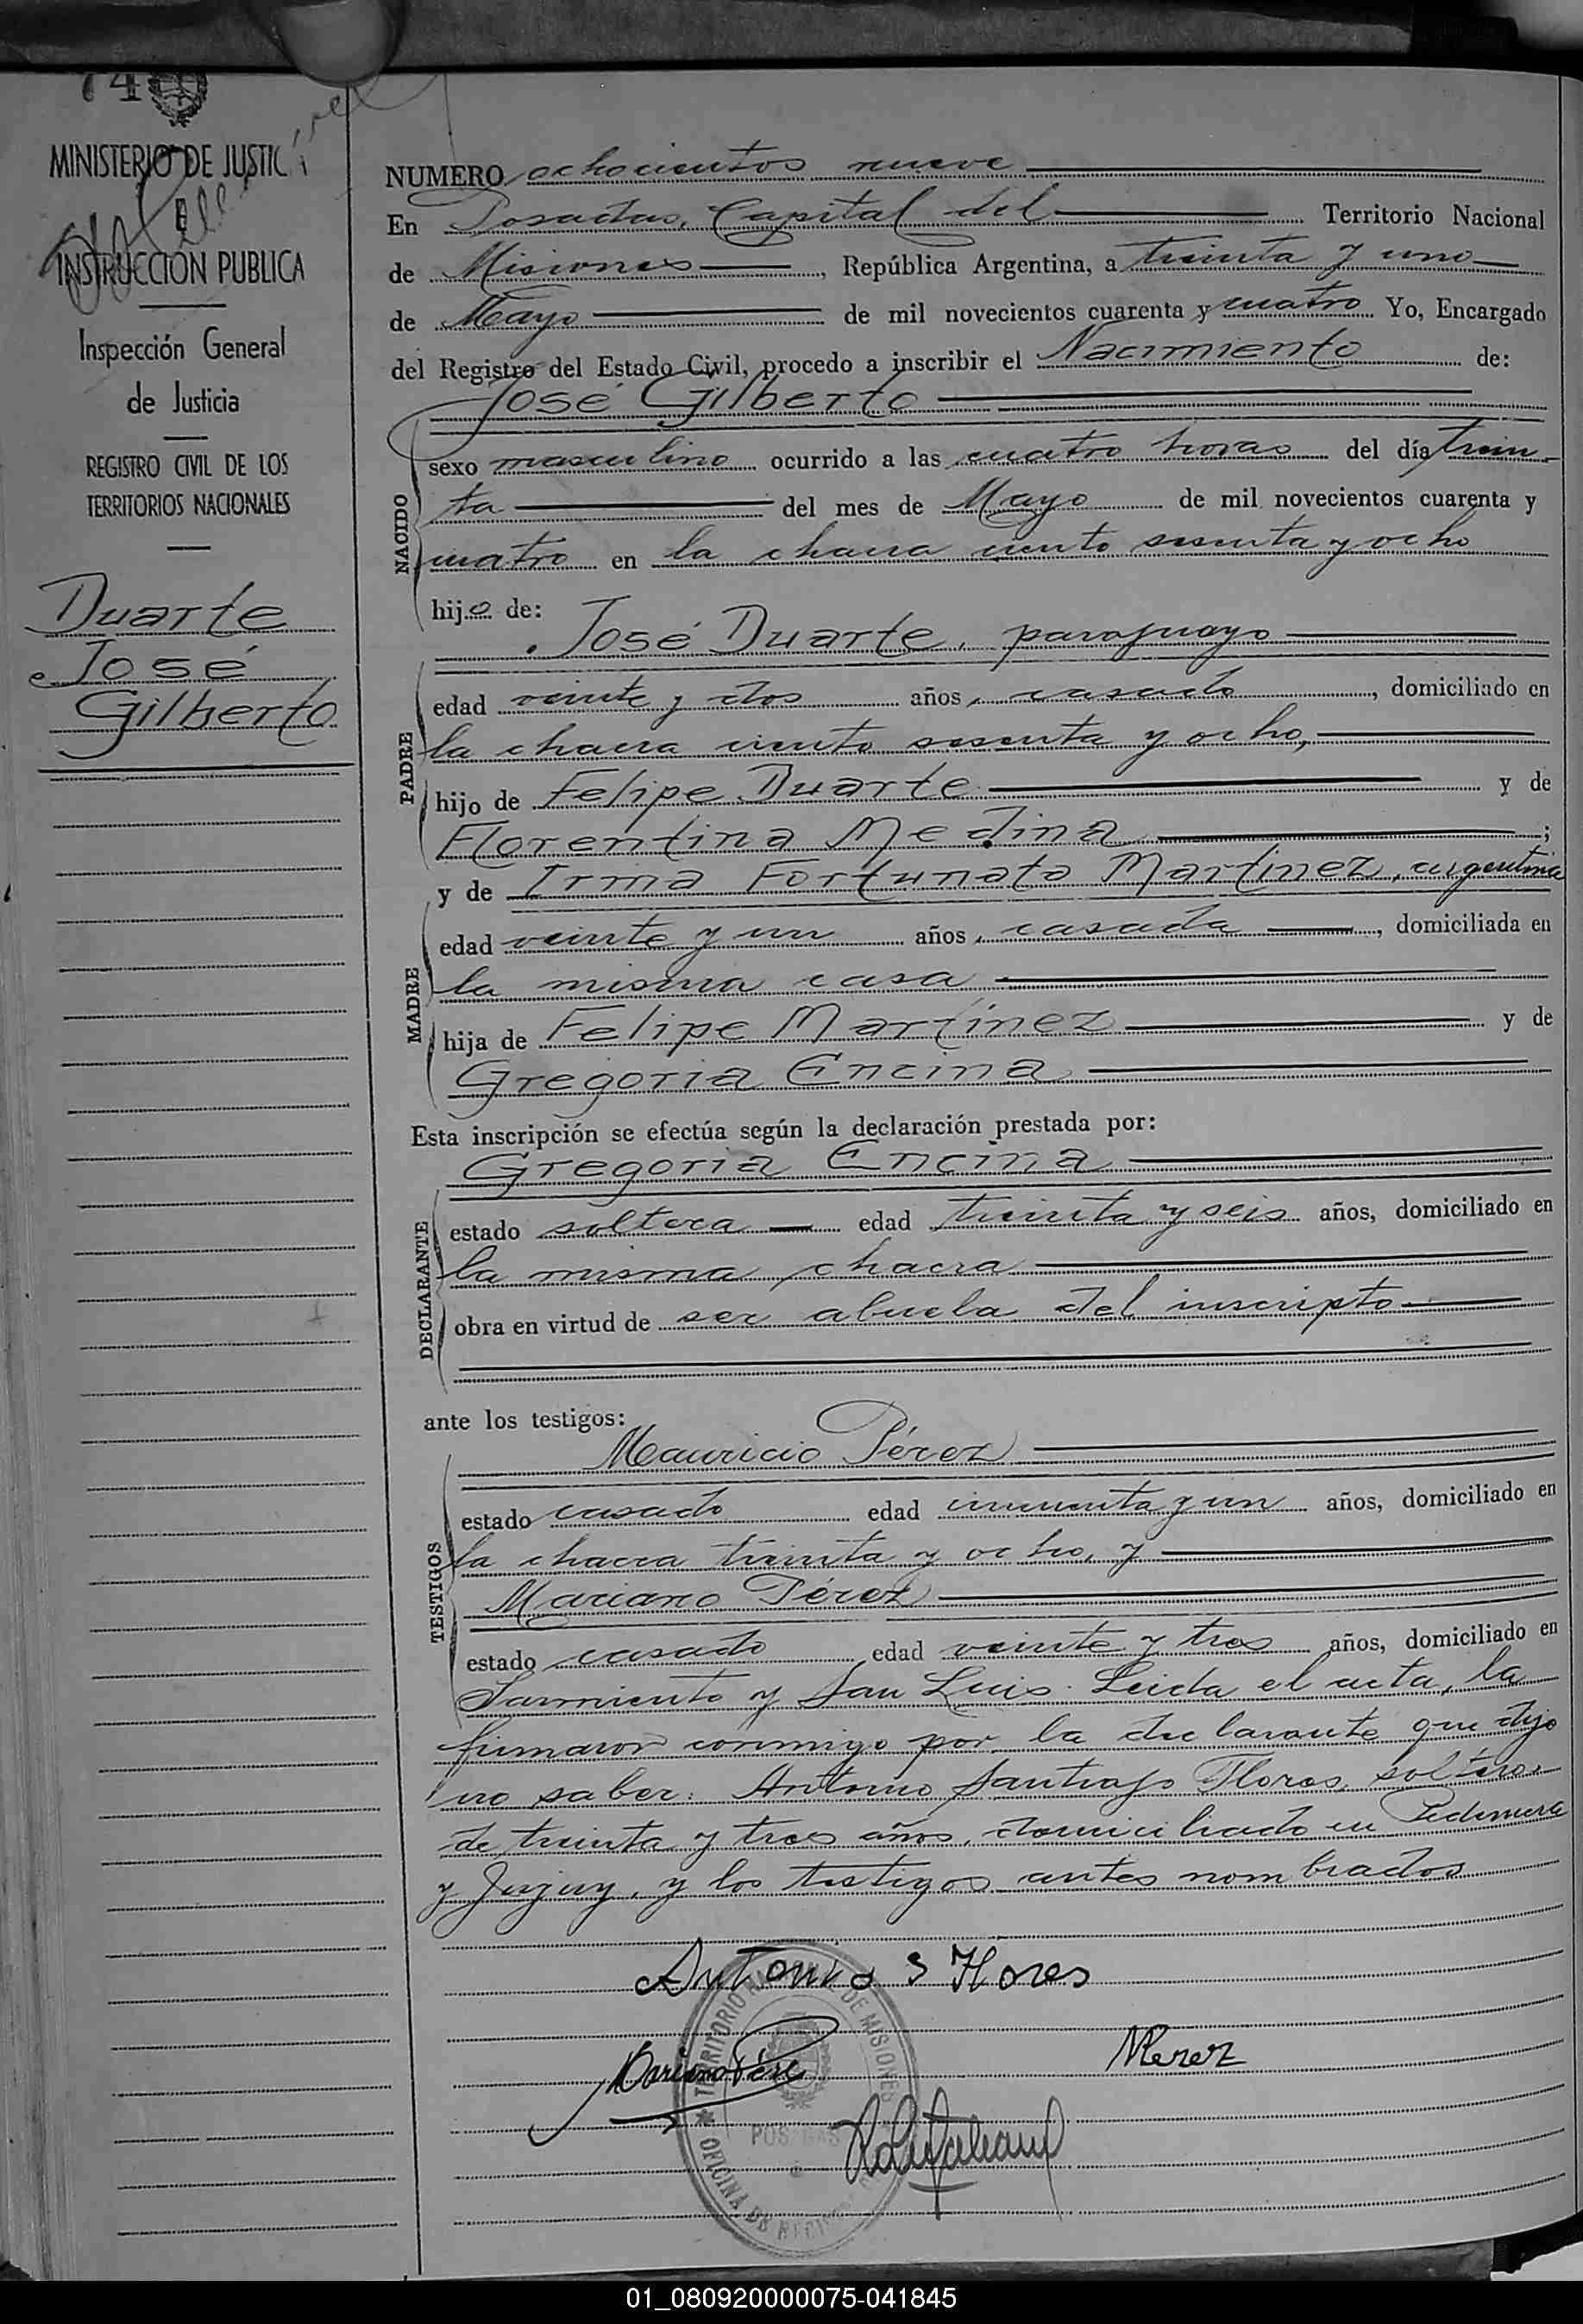 74
MINISTERIO DE JUSTICIA
E
INSTRUCCIÓN PUBLICA
Inspección General
de Justicia
REGISTRO CIVIL DE LOS
TERRITORIOS NACIONALES
Duarte
José
Gilberto
NUMERO ochocientos nueve
En Posadas, Capital del Territorio Nacional
de Misiones, República Argentina, a treinta y uno
de Mayo de mil novecientos cuarenta y cuatro Yo, Encargado
del Registro del Estado Civil, procedo a inscribir el Nacimiento de:
José Gilberto
NACIDO
sexo masculino ocurrido a las cuatro horas del día trein-
ta del mes de Mayo de mil novecientos cuarenta y
cuatro en la chacra ciento sesenta y ocho
hijo de:
José Duarte, paraguayo
PADRE
edad veinte y dos años, casado, domiciliado en
la chacra ciento sesenta y ocho,
hijo de Felipe Duarte y de
Florentina Medina;
y de Irma Fortunata Martínez, argentina
MADRE
edad veinte y un años, casada, domiciliada en
la misma casa
hija de Felipe Martínez y de
Gregoria Encina
Esta inscripción se efectúa según la declaración prestada por:
Gregoria Encina
DECLARANTE
estado soltera edad treinta y seis años, domiciliado en
la misma chacra
obra en virtud de ser abuela del inscripto
ante los testigos:
Mauricio Pérez
TESTIGOS
estado casado edad cincuenta y un años, domiciliado en
la chacra treinta y ocho, y
Mariano Pérez
estado casado edad veinte y tres años, domiciliado en
Sarmiento y San Luis. Leida el acta, la
firmaron conmigo por la declarante que dijo
no saber: Antonio Santiago Flores, soltero,
de treinta y tres años, domiciliado en Pedernera
y Jujuy, y los testigos antes nombrados
Antonio S Flores
Mariano Pérez
MPerez
TERRITORIO DE MISIONES
POSADAS
OFICINA DE
01_080920000075-041845